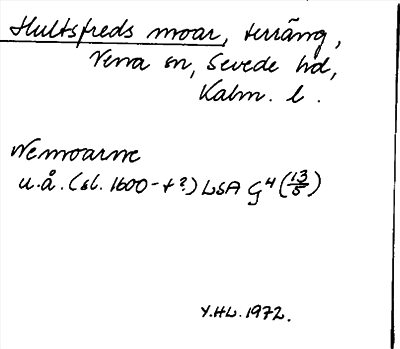 Hultsfreds moar, terräng,
Vena sn, Sevede hd,
Kalm. l.
Wemoarne
u.å. (sl. 1600-t?) LSA G4 (13/5)
Y.HL. 1972.